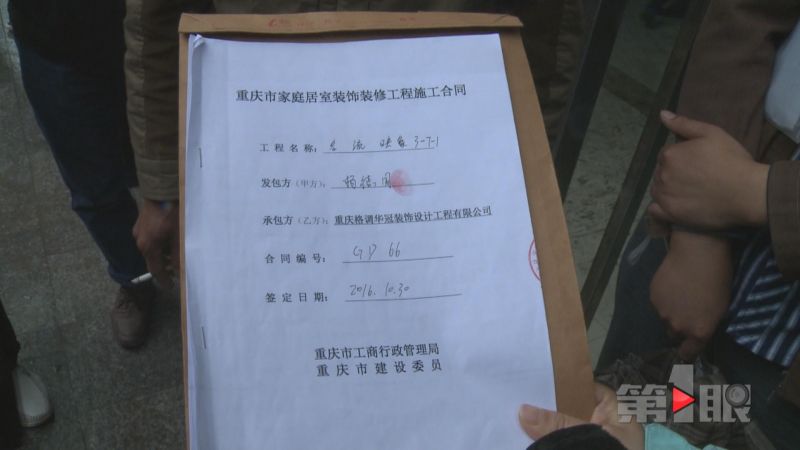 重庆市家庭居室装饰装修工程施工合同
工程名称：名流 映象 3-7-1
发包方（甲方）：杨
承包方（乙方）：重庆格调华冠装饰设计工程有限公司
合同编号：GD 66
签定日期：2016.10.30
重庆市工商行政管理局
重庆市建设委员
第1眼